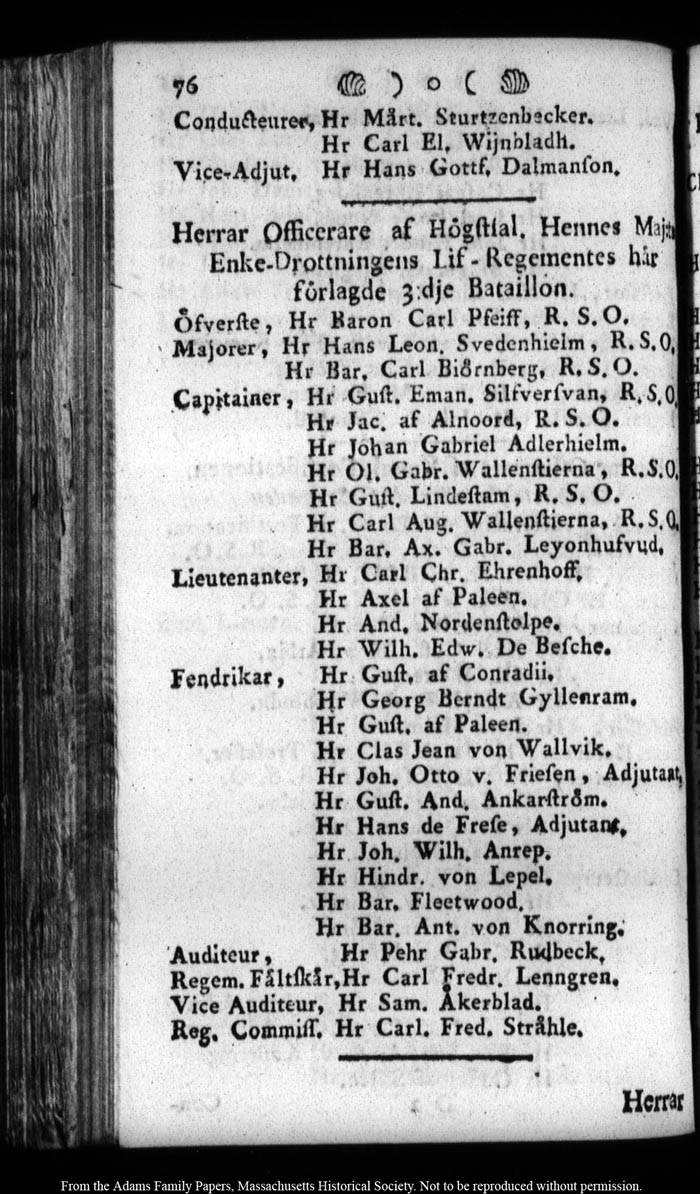 76 ) o (
Conducteurer, Hr Mårt. Sturtzenbecker.
Hr Carl El. Wijnbladh.
Vice-Adjut. Hr Hans Gottf. Dalmanſon.
Herrar Officerare af Högſtſal. Hennes
Enke-Drottningens Lif-Regementes här
förlagde 3:dje Bataillon.
Öfverſte, Hr Baron Carl Pfeiff, R. S. O.
Majorer, Hr Hans Leon. Svedenhielm, R. S. O.
Hr Bar. Carl Biörnberg, R. S. O.
Capitainer, Hr Guſt. Eman. Silfverſvan, R. S. O.
Hr Jac. af Alnoord, R. S. O.
Hr Johan Gabriel Adlerhielm.
Hr Ol. Gabr. Wallenſtierna, R. S. O.
Hr Guſt. Lindeſtam, R. S. O.
Hr Carl Aug. Wallenſtierna, R. S. O.
Hr Bar. Ax. Gabr. Leyonhufvud.
Lieutenanter, Hr Carl Chr. Ehrenhoff.
Hr Axel af Paleen.
Hr And. Nordenſtolpe.
Hr Wilh. Edw. De Beſche.
Fendrikar, Hr Guſt. af Conradii.
Hr Georg Berndt Gyllenram.
Hr Guſt. af Paleen.
Hr Clas Jean von Wallvik.
Hr Joh. Otto v. Frieſen, Adjutant,
Hr Guſt. And. Ankarſtröm.
Hr Hans de Freſe, Adjutant.
Hr Joh. Wilh. Anrep.
Hr Hindr. von Lepel.
Hr Bar. Fleetwood.
Hr Bar. Ant. von Knorring.
Auditeur, Hr Pehr Gabr. Rudbeck.
Regem. Fältſkär, Hr Carl Fredr. Lenngren.
Vice Auditeur, Hr Sam. Åkerblad.
Reg. Commiſſ. Hr Carl. Fred. Stråhle.
Herrar
From the Adams Family Papers, Massachusetts Historical Society. Not to be reproduced without permission.